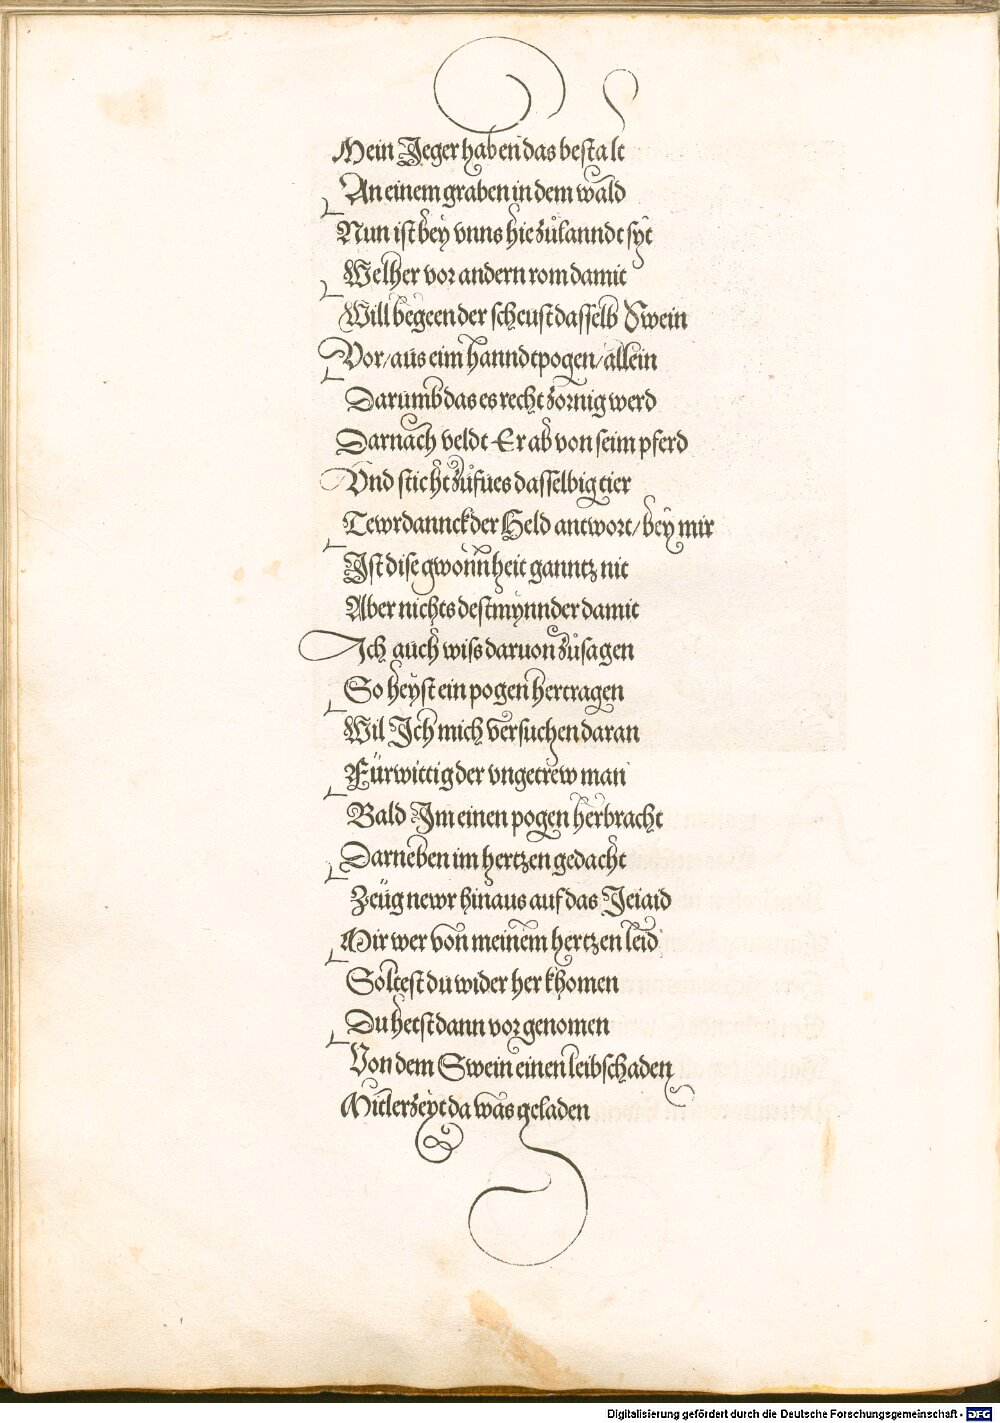 Mein Jeger haben das bestalt
An einem graben in dem wald
Nun ist bey vnns hie zůlanndt syt
Welher vor andern rom damit
Will begeen der scheust dasselb Swein
Vor/aus eim hanndtpogen/allein
Darumb das es recht zornig werd
Darnach veldt Er ab von seim pferd
Vnd sticht zůfües dasselbig tier
Tewrdannck der Held antwort/bey mir
Ist dise gwonnheit ganntz nit
Aber nichts destmynnder damit
Ich auch wiss daruon zůsagen
So heyst ein pogen hertragen
Wil Ich mich versuchen daran
Fürwittig der vngetrew man
Bald Im einen pogen herbracht
Darneben im hertzen gedacht
Zeüg newr hinaus auf das Jeiaid
Mir wer von meinem hertzen leid
Soltest du wider her khomen
Du hetst dann vor genomen
Von dem Swein einen leibschaden
Mitlerzeyt da was geladen
Digitalisierung gefördert durch die Deutsche Forschungsgemeinschaft - DFG